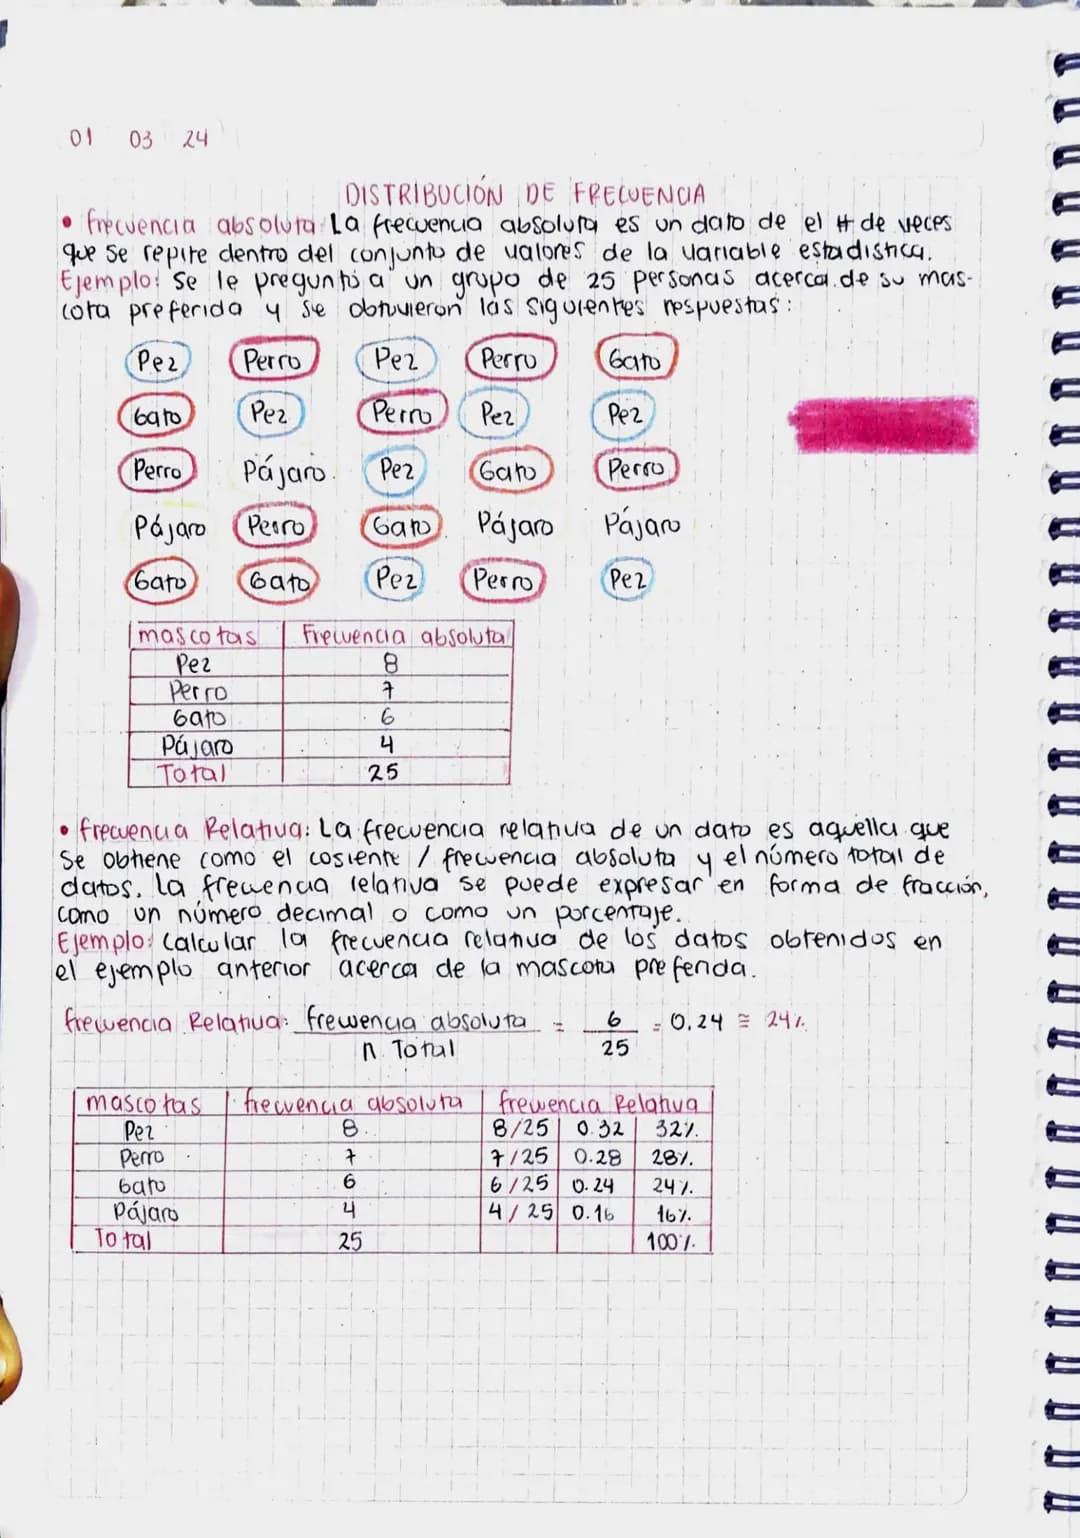 01 03 24
DISTRIBUCIÓN DE FRECUENCIA
• frecuencia absoluta La frecuencia absoluta es un dato de el # de veces
que se repite dentro del conjunto de valores de la variable estadistica.
Ejemplo: Se le preguntó a un grupo de 25 personas acerca de su mas-
cota preferida y se obtuvieron las siguientes respuestas:
Pez Perro Pez Perro Gato
Gato Pez Perro Pez Pez
Perro Pájaro Pez Gato Perro
Pájaro Perro Gato Pájaro Pájaro
Gato Gato Pez Perro Pez
mascotas Frecuencia absoluta
Pez 8
Perro 7
Gato 6
Pájaro 4
Total 25
• frecuencia Relativa: La frecuencia relativa de un dato es aquella que
se obtiene como el cosiente / frecuencia absoluta y el número total de
datos. La frecuencia relativa se puede expresar en forma de fracción,
como un número decimal o como un porcentaje.
Ejemplo: Calcular la frecuencia relativa de los datos obtenidos en
el ejemplo anterior acerca de la mascota preferida.
frecuencia Relativa: frecuencia absoluta = 6 = 0.24 ≅ 24%.
n Total 25
mascotas frecuencia absoluta frecuencia Relativa
Pez 8 8/25 0.32 32%.
Perro 7 7/25 0.28 28%.
Gato 6 6/25 0.24 24%.
Pájaro 4 4/25 0.16 16%.
Total 25 100%.